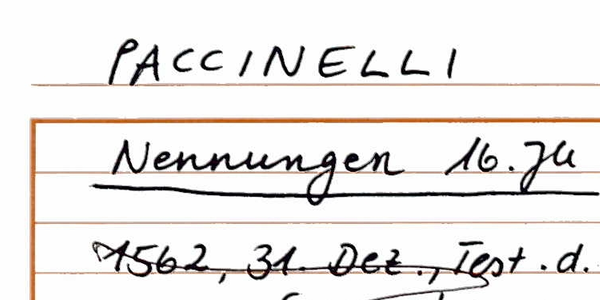 PACCINELLI
Nennungen 16. Jh
1562, 31. Dez., Test. d.